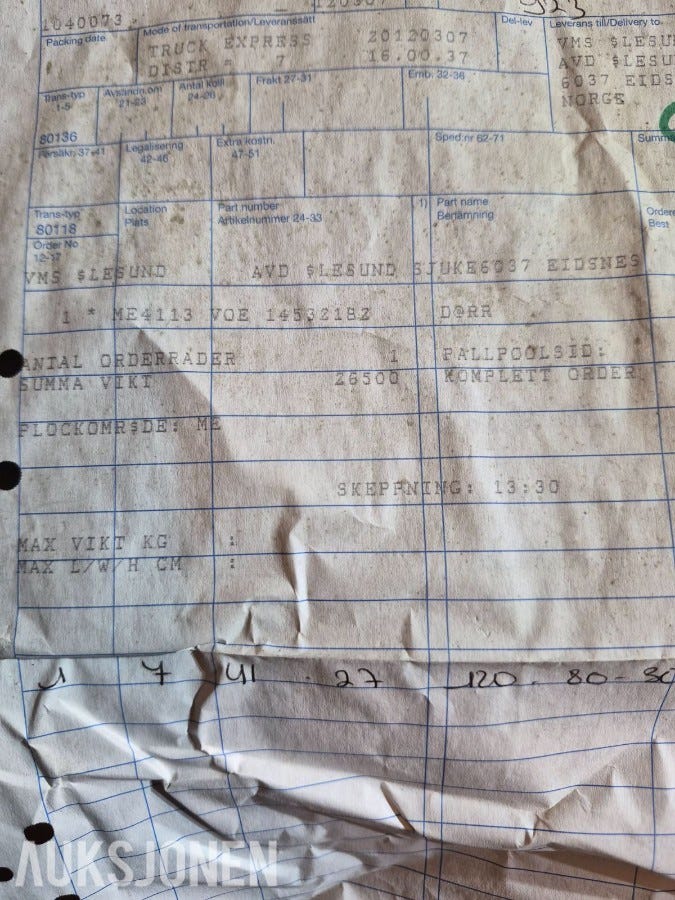 1040073
Packing date
Mode of transportation/Leveranssätt
Del-lev
Leverans till/Delivery to
TRUCK EXPRESS 20120307
DISTR = 7 16.00.37
VMS $LESU
AVD $LESU
6037 EIDS
NORGE
Trans-typ
1-5
80136
Avsändn.om
21-23
Antal kolli
24-26
Frakt 27-31
Emb. 32-36
Försäkr. 37-41
Legalisering
42-46
Extra kostn.
47-51
Sped.nr 62-71
Summa
Trans-typ
80118
Location
Plats
Part number
Artikelnummer 24-33
1)
Part name
Benämning
Ordere
Best
Order No
12-17
VMS $LESUND AVD $LESUND SJUKE6037 EIDSNES
1 * ME4113 VOE 14532182 D@RR
ANTAL ORDERRADER 1 PALLPOOLSID:
SUMMA VIKT 26500 KOMPLETT ORDER
PLOCKOMR$DE: ME
SKEPPNING: 13:30
MAX VIKT KG :
MAX L/W/H CM :
1 7 41 27 120 - 80 -
AUKSJONEN